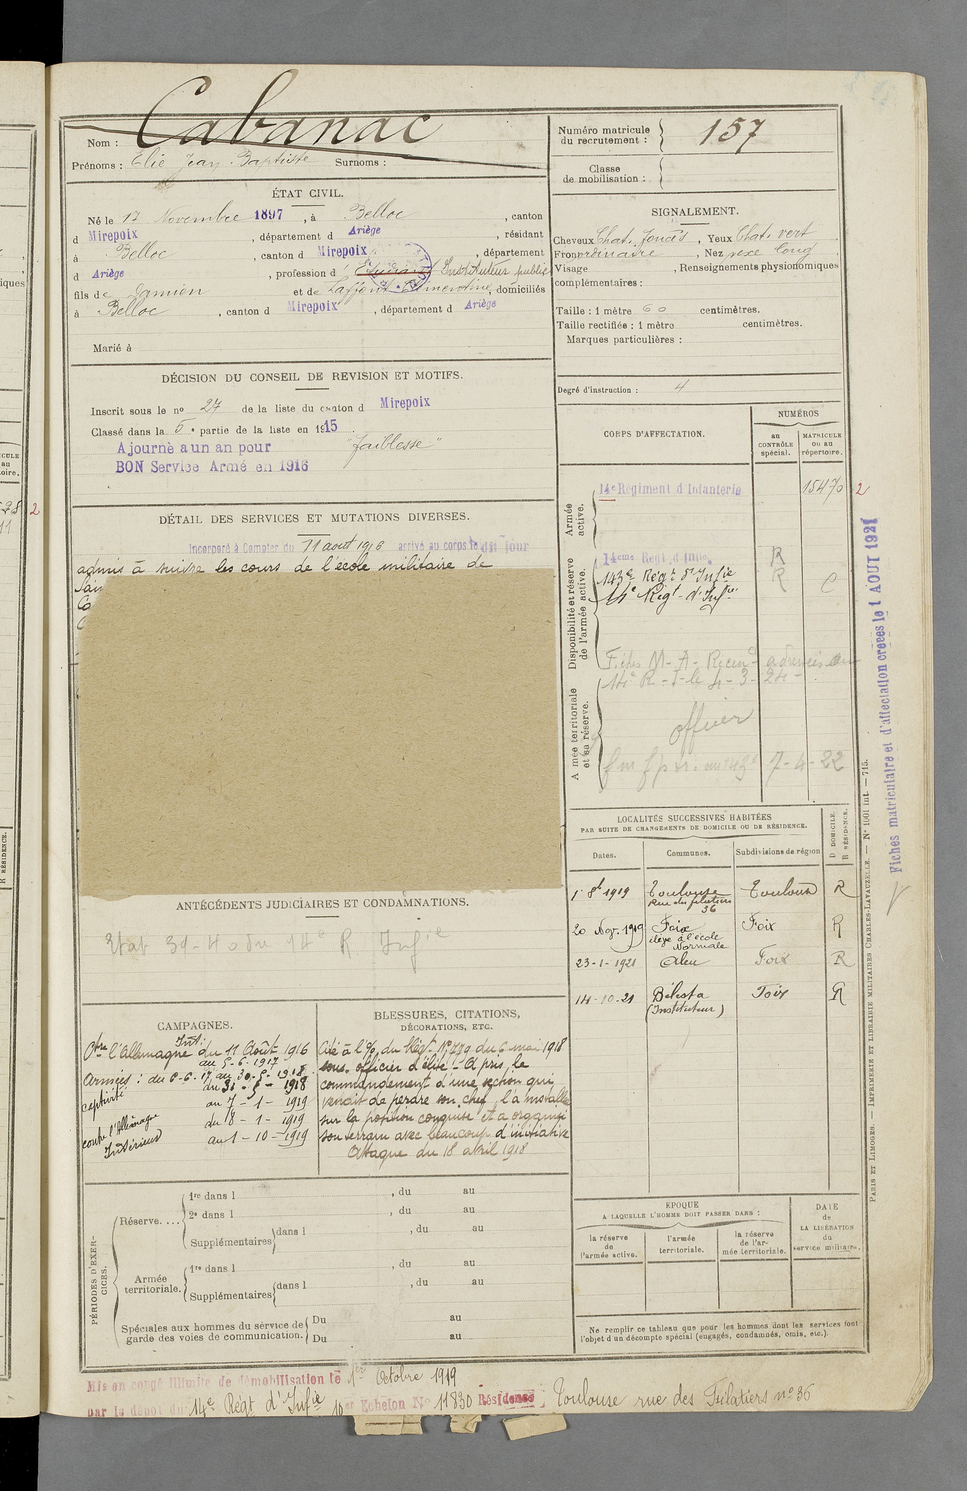 Cabanac
Nom :
Prénoms : Elie Jean-Baptiste Surnoms :
Numéro matricule du recrutement : 157
Classe de mobilisation :
ÉTAT CIVIL.
Né le 17 Novembre 1897, à Belloc, canton
d Mirepoix, département d Ariège, résidant
à Belloc, canton d Mirepoix, département
d Ariège, profession d Instituteur public
fils de Damien et de Laffont, domiciliés
à Belloc, canton d Mirepoix, département d Ariège
Marié à
SIGNALEMENT.
Cheveux Chat. foncés, Yeux Chat. vert
Front ordinaire, Nez long
Visage , Renseignements physionomiques
complémentaires :
Taille : 1 mètre 60 centimètres.
Taille rectifiée : 1 mètre centimètres.
Marques particulières :
Degré d'instruction : 4
DÉCISION DU CONSEIL DE REVISION ET MOTIFS.
Inscrit sous le no 27 de la liste du canton d Mirepoix
Classé dans la 5e partie de la liste en 1915.
Ajourné a un an pour "faiblesse"
BON Service Armé en 1916
CORPS D'AFFECTATION.
NUMÉROS
au CONTRÔLE spécial.
MATRICULE ou au répertoire.
Armée active.
14e Régiment d'Infanterie 15470 2
Disponibilité et réserve de l'armée active.
14eme Régt d'Infie R
143e Régt d'Infie R C
14e Régt d'Infie
Fiches M-A-
14e R-I-le 4-3-24-
Armée territoriale et sa réserve.
officier
7-4-22
DÉTAIL DES SERVICES ET MUTATIONS DIVERSES.
Incorporé à Compter du 11 août 1916 arrivé au corps le dit jour
admis à suivre les cours de l'école militaire de
ANTÉCÉDENTS JUDICIAIRES ET CONDAMNATIONS.
Etat 39-40 du 14e R. Infie
LOCALITÉS SUCCESSIVES HABITÉES
PAR SUITE DE CHANGEMENTS DE DOMICILE OU DE RÉSIDENCE.
Dates. Communes. Subdivisions de région D DOMICILE. R RÉSIDENCE.
1r 8b 1919 Toulouse Rue des filatiers 36 Toulouse R
20 Nov. 1919 Foix élève à l'école Normale Foix R
23-1-1921 Aleu Foix R
14-10-21 Bélesta (Instituteur) Foix R
CAMPAGNES.
Ctre l'Allemagne Int: du 11 Août 1916
au 5-6-1917
Armées : du 6-6-17 au 30-5-1918
captivité du 31-5-1918
au 7-1-1919
contre l'Allemagne du 8-1-1919
Intérieur au 1-10-1919
BLESSURES, CITATIONS,
DÉCORATIONS, ETC.
Cité à l'O/ du Régt. No 489 du 6 mai 1918
sous-officier d'élite - A pris le
commandement d'une section qui
venait de perdre son chef, l'a installée
sur la position conquise et a organisé
son terrain avec beaucoup d'initiative
Attaque du 18 avril 1918
PÉRIODES D'EXERCICES.
Réserve....
1re dans l , du au
2e dans l , du au
Supplémentaires dans l , du au
Armée territoriale.
1re dans l , du au
Supplémentaires dans l , du au
Spéciales aux hommes du service de garde des voies de communication.
Du au
Du au
EPOQUE
A LAQUELLE L'HOMME DOIT PASSER DANS :
la réserve de l'armée active.
l'armée territoriale.
la réserve de l'armée territoriale.
DATE de LA LIBÉRATION du service militaire.
Ne remplir ce tableau que pour les hommes dont les services font
l'objet d'un décompte spécial (engagés, condamnés, omis, etc.)
Mis en congé illimité de démobilisation le 1er Octobre 1919
par le dépôt du 14e Régt d'Infie 1er Echelon No 11830 Résidence Toulouse rue des Filatiers no 36
Fiches matriculaire et d'affectation créées le 1 AOUT 1921
PARIS ET LIMOGES. — IMPRIMERIE ET LIBRAIRIE MILITAIRES CHARLES-LAVAUZELLE. — No 1001 int. — 715.